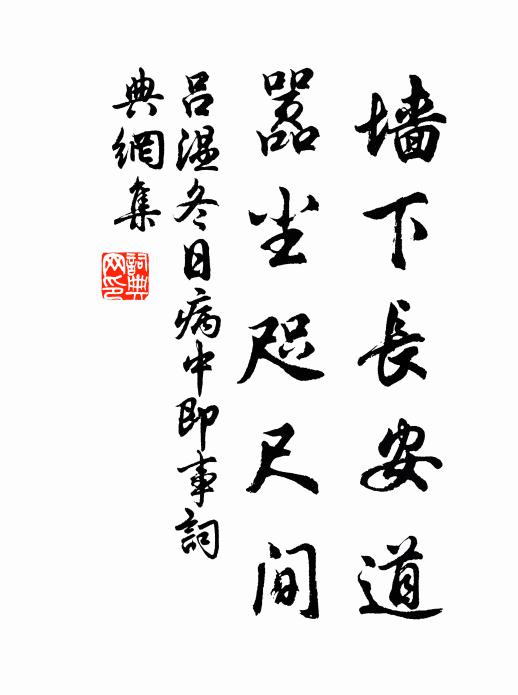 墙下長安道
嚣尘咫尺间
吕温冬日病中即事詞
典網集
詞典网印